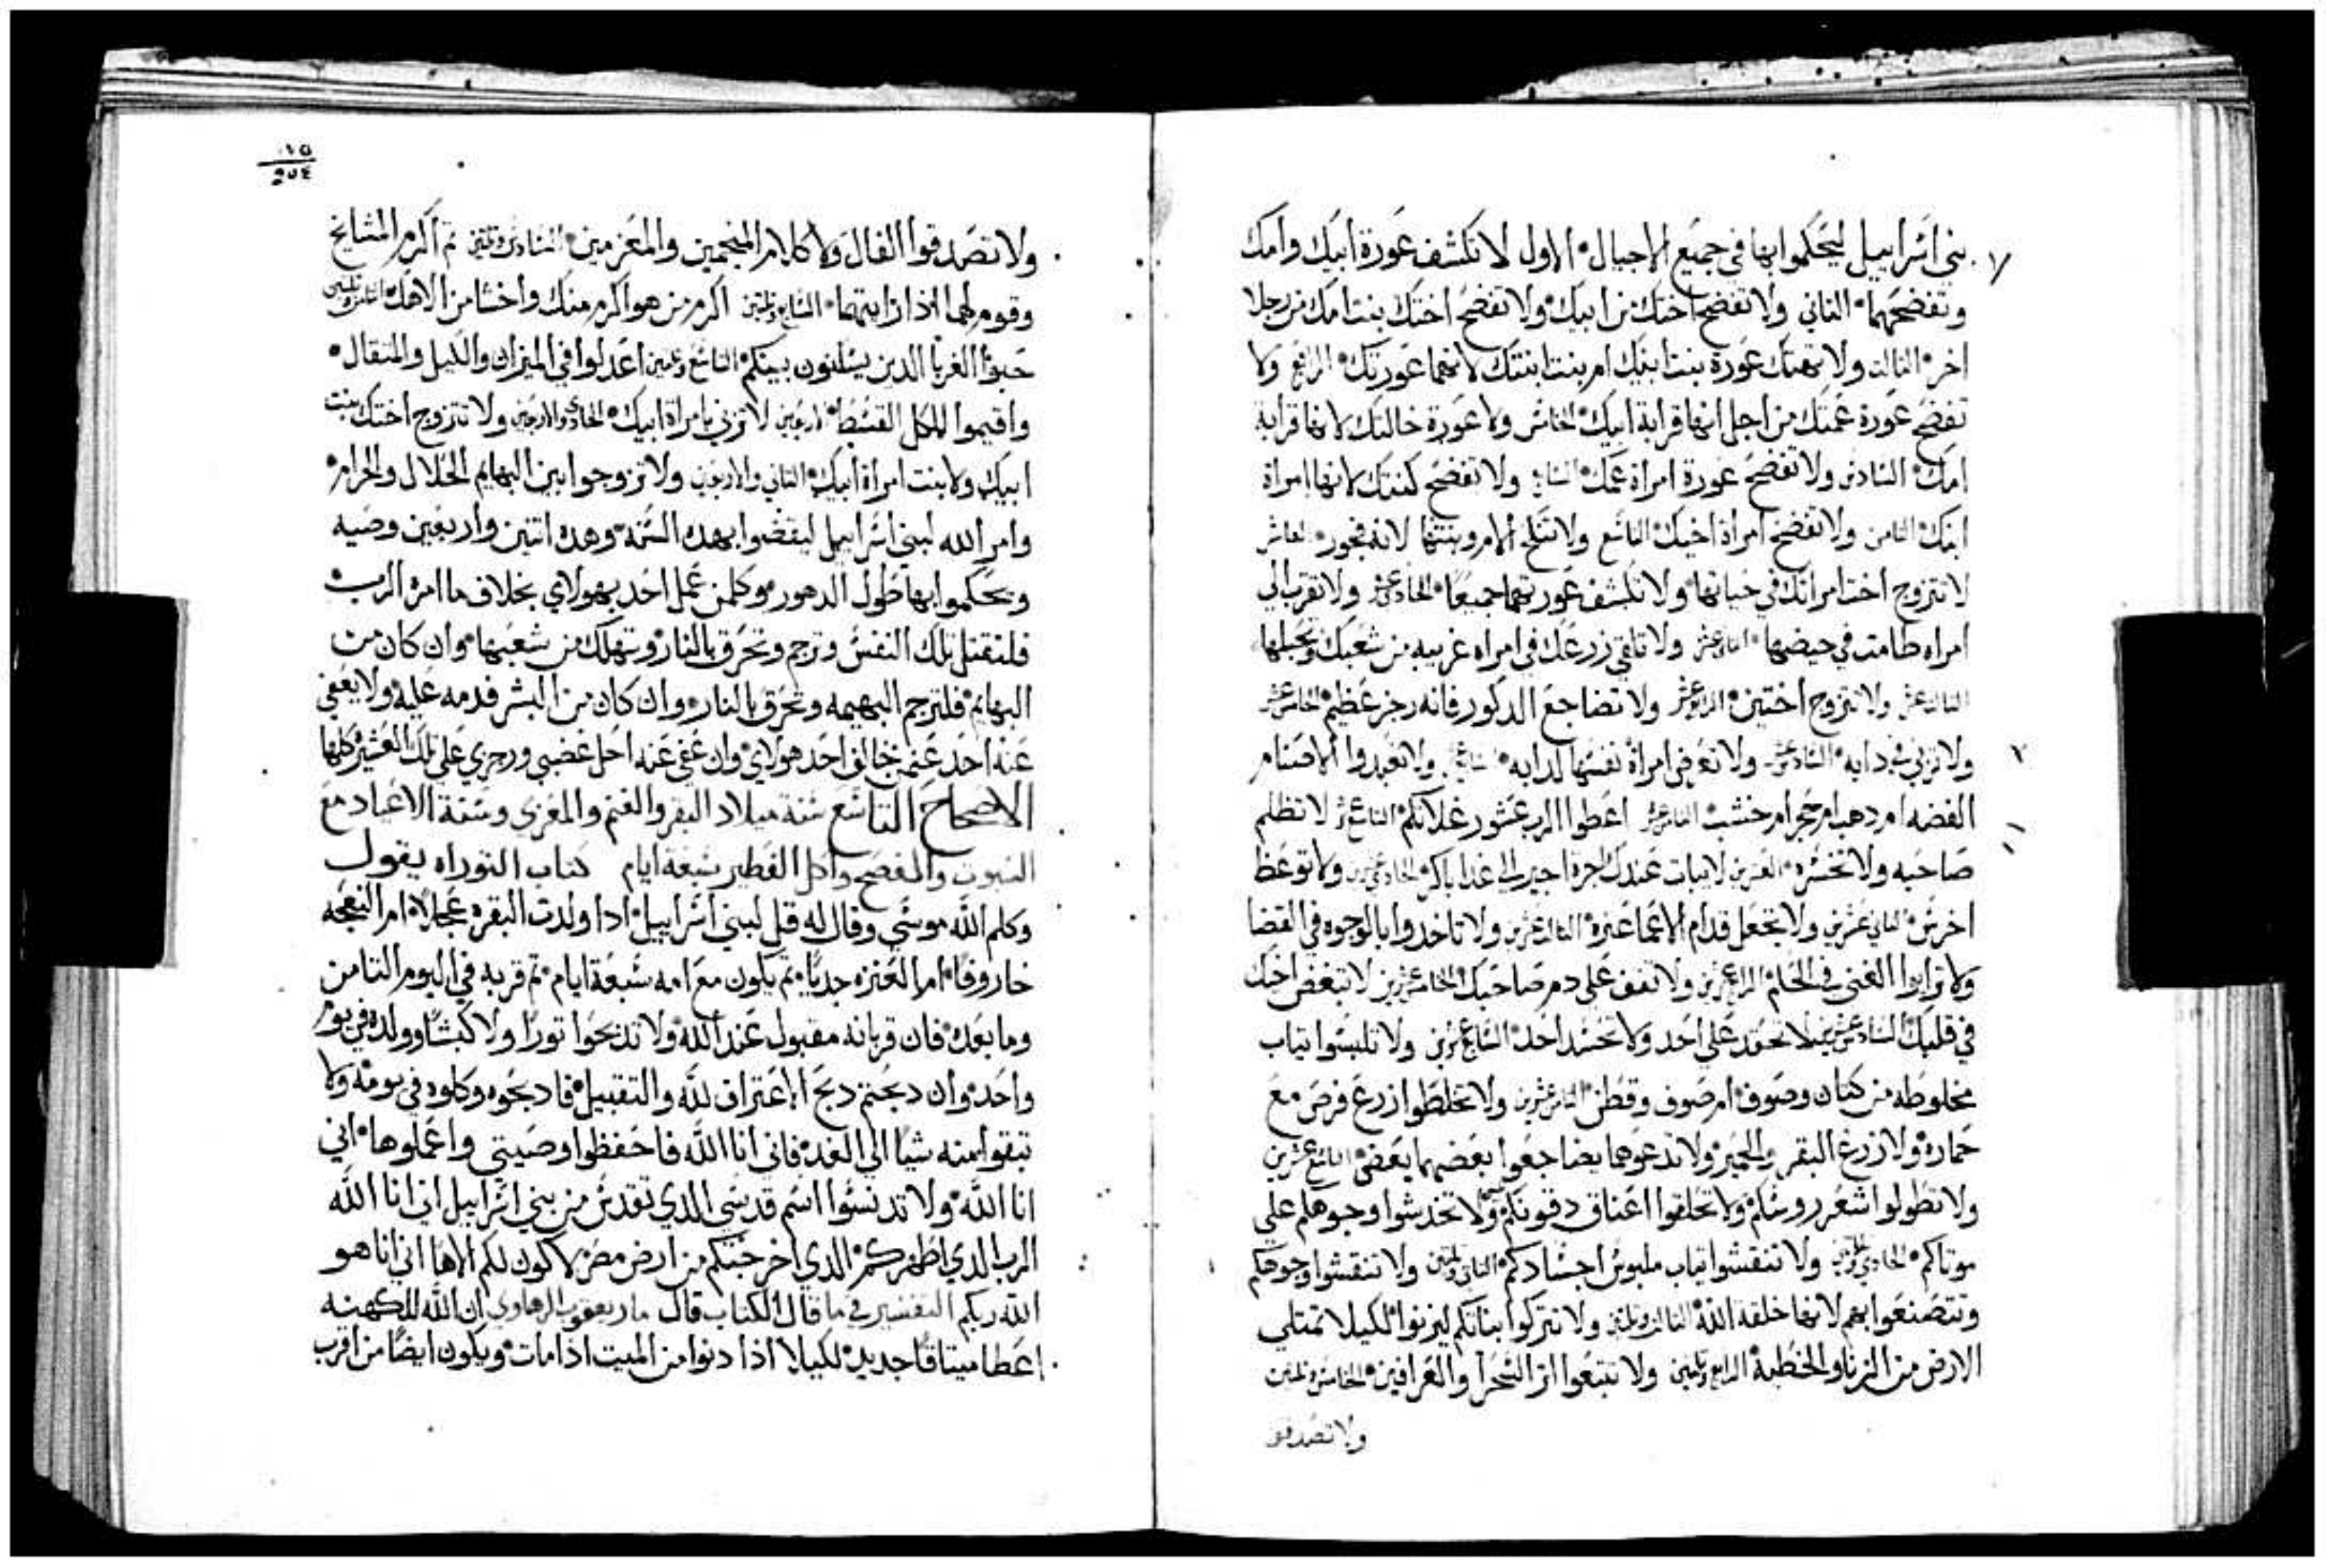 بني اسراييل ليحكموا بها في جميع الاجيال الاول لا تكشف عورة ابيك وامك
وتفضحهما الثاني ولا تفضح اختك من ابيك ولا تفضح اختك بنت امك من رجلا
اخر الثالث ولا تهتك عورة بنت ابنك ام بنت ابنتك لانهما عورتك الرابع ولا
تفضح عورة عمتك من اجل انها قرابة ابيك الخامس ولا عورة خالتك لانها قرابة
امك السادس ولا تفضح عورة امراة عمك السابع ولا تفضح كنتك لانها امراة
ابنك الثامن ولا تفضح امراة اخيك التاسع ولا تنكح الام وبنتها لانه فجور العاشر
لا تتزوج اخت امراتك في حياتها ولا تكشف عورتهما جميعا الحادي عشر ولا تقرب الي
امراه طامث في حيضها الثاني عشر ولا تلقي زرعك في امراه غريبه من شعبك وتحبلها
الثالث عشر ولا تتزوج اختين الرابع عشر ولا تضاجع الدكور فانه رجز عظيم الخامس عشر
ولا تزني في دابه السادس عشر ولا تعرض امراة نفسها لدابه السابع عشر ولا تعبدوا الاصنام
الفضه ام دهب ام حجر ام خشب الثامن عشر اعطوا الرب عشور غلاتكم التاسع عشر لا تظلم
صاحبه ولا تخسره العشرين لا يبات عندك اجرة اجير الي غدا باكر الحادي عشرين ولا توعظ
اخرس الثاني عشرين ولا تجعل قدام الاعما عثرة الثالث عشرين ولا تاخدوا بالوجوه في القضا
ولا تراوا الغني في الحكم الرابع عشرين ولا تقف علي دم صاحبك الخامس عشرين لا تبغض اخيك
في قلبك السادس عشرين لا تحقد علي احد ولا تحسد احد السابع عشرين ولا تلبسوا تياب
مخلوطه من كتان وصوف ام صوف وقطن الثامن عشرين ولا تخلطوا زرع فرس مع
حماره ولا زرع البقر والحمير ولا تدعوهما يضاجعوا بعضهما بعض التاسع عشرين
ولا تطولوا شعر روسكم ولا تحلقوا اعناق دقونكم ولا تخدشوا وجوهكم علي
موتاكم الحادي وتلتين ولا تنقشوا تياب ملبوس اجسادكم الثاني وتلتين ولا تنقشوا وجوهكم
وتتصنعوا بهم لانها خلقة الله الثالث وتلتين ولا تتركوا بناتكم ليزنوا لكيلا تمتلي
الارض من الزنا والخطية الرابع وتلتين ولا تتبعوا اثر السحرا والعرافين الخامس وتلتين
ولا تصدقوا
١٧٥
٢٥٤
ولا تصدقوا الفال ولا كلام المنجمين والمعزمين السادس وتلتين تم اكرم المشايخ
وقوم لهما اذا رايتهما السابع وتلتين اكرم من هو اكرم منك واخشا من الاهك الثامن وتلتين
حبوا الغربا الدين يسكنون بينكم التاسع وتلتين اعدلوا في الميزان والكيل والمتقال
واقيموا للكل القسط الاربعين لا تزني بامراة ابيك الحادي والاربعين ولا تتزوج اختك بنت
ابيك ولا بنت امراة ابيك الثاني والاربعين ولا تزوجوا بين البهايم الحلال والحرام
وامر الله لبني اسراييل ليقضوا بهده السنه وهده اتنين واربعين وصيه
ويحكموا بها طول الدهور وكلمن عمل احد بهولاي بخلاف ما امر الرب
فلتقتل تلك النفس وترجم وتحرق بالنار وتهلك من شعبها وان كان من
البهايم فلترجم البهيمه وتحرق بالنار وان كان من البشر فدمه عليه ولا يعفي
عنه احد عنمن خالف احد هولاي وان عفي عنه احل غضبي ورجزي علي تلك العشيرة كلها
الاصحاح التاسع سنة ميلاد البقر والغنم والمعزي وسنة الاعياد مع
السبوت والفصح واكل الفطير سبعة ايام كتاب التوراه يقول
وكلم الله موسي وقال له قل لبني اسراييل ادا ولدت البقره عجلا ام النعجه
خاروفا ام العنزه جديا تم يكون مع امه سبعة ايام تم قربه في اليوم التامن
وما بعده فان قربانه مقبول عند الله ولا تدبحوا تورا ولا كبشا وولده في يوم
واحد وان دبحتم دبح الاعتراف لله والتقبيل فادبحوه وكلوه في يومه ولا
تبقوا منه شيا الي الغد فاني انا الله فاحفظوا وصيتي واعملوها اني
انا الله ولا تدنسوا اسم قدسي الدي تقدس من بني اسراييل اني انا الله
الرب الدي اطهركم الدي اخرجتكم من ارض مصر لاكون لكم الاها اني انا هو
الله ربكم التفسير في ما قال الكتاب قال مار يعقوب الرهاوي ان الله للكهنه
اعطا ميتاقا جديد لكيلا اذا دنوا من الميت اذا مات ويكون ايضا من اقرب